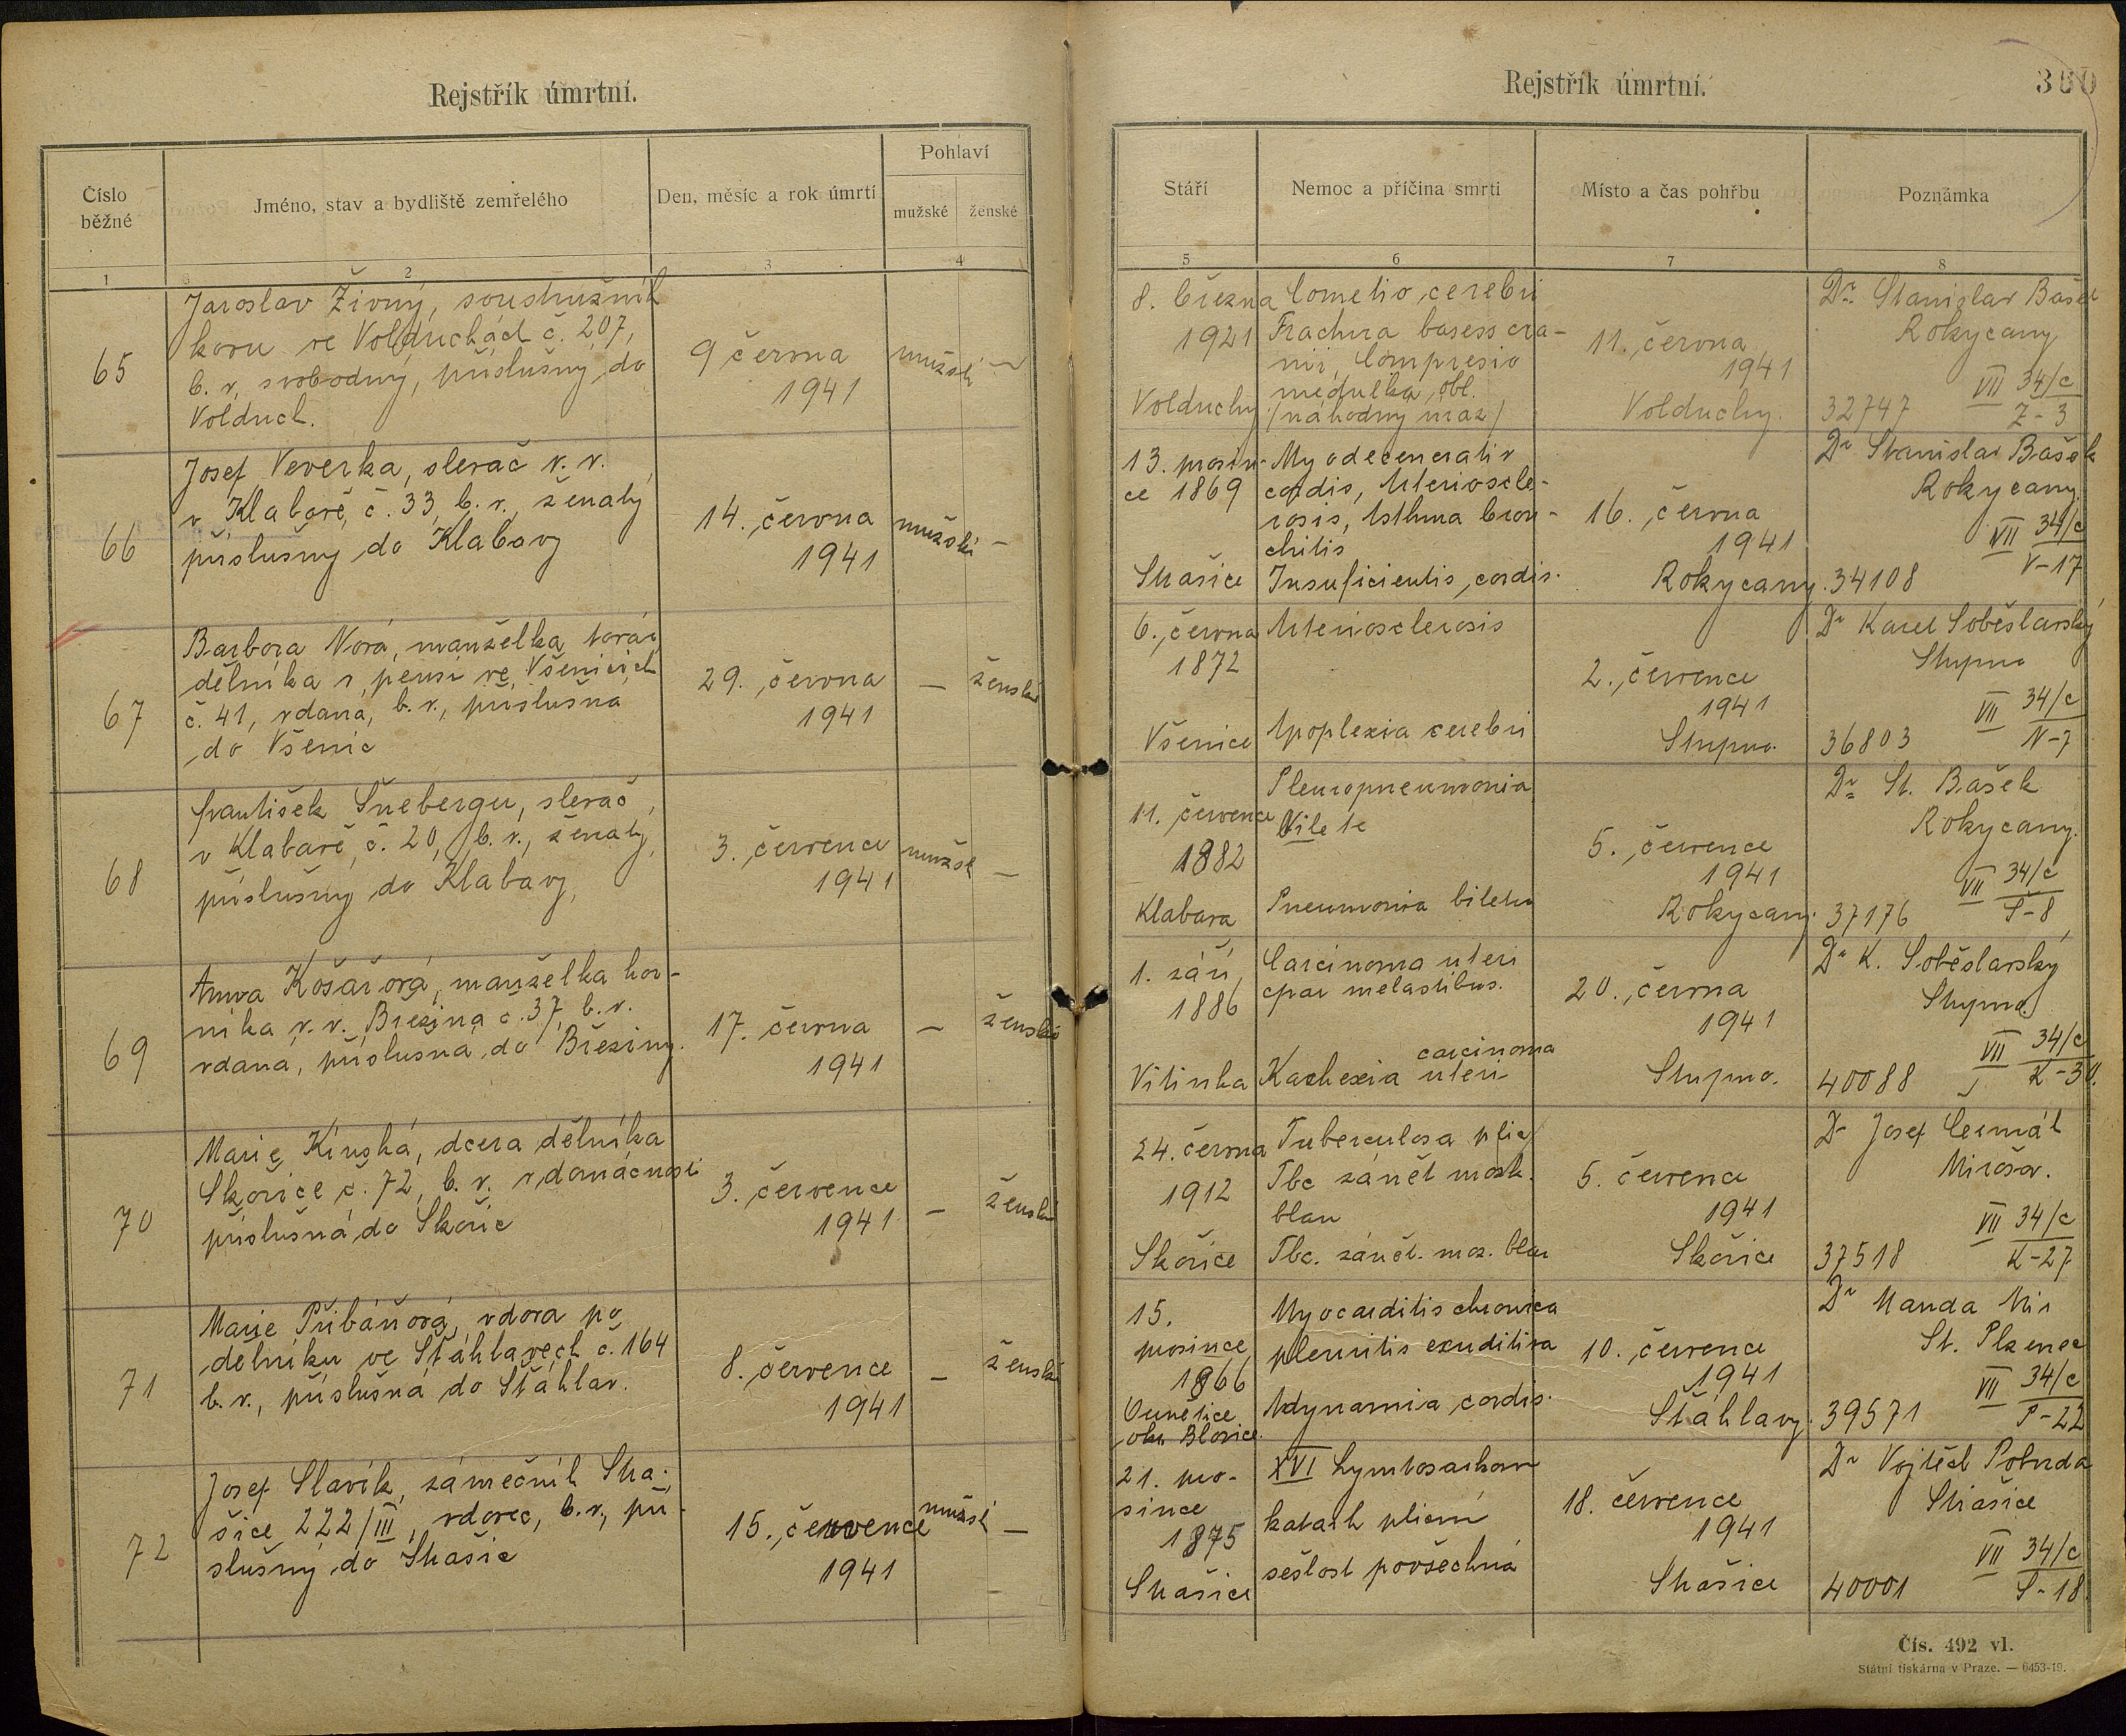 Rejstřík úmrtní.
Číslo běžné
Jméno, stav a bydliště zemřelého
Den, měsíc a rok úmrtí
Pohlaví
mužské
ženské
1
2
3
4
65
Jaroslav Živný, soustružník
kovu ve Volduchách č. 207,
b. v. svobodný, příslušný do
Volduch.
9 června
1941
mužsk
—
66
Josef Veverka, slevač v. v.
v Klabavě, č. 33, b. v., ženatý
příslušný do Klabavy
14. června
1941
mužské
—
67
Barbora Nová, manželka továr.
dělníka v pensi ve Všenicích
č. 41, vdaná, b. v., příslušná
do Všenic
29. června
1941
—
ženské
68
František Šneberger, slevač
v Klabavě, č. 20, b. v., ženatý,
příslušný do Klabavy,
3. července
1941
mužsk
—
69
Anna Košařová, manželka hor-
níka v. v. Březina č. 37, b. v.
vdaná, příslušná do Březiny.
17. června
1941
—
ženské
70
Marie Kínská, dcera dělníka
Skořice č. 72, b. v. v domácnosti
příslušná do Skořic
3. července
1941
—
ženské
71
Marie Přibáňová, vdova po
dělníku ve Šťáhlavech č. 164
b. v., příslušná do Šťáhlav.
8. července
1941
—
ženské
72
Josef Slavík, zámečník Stra-
šice 222/III, vdovec, b. v., pří-
slušný do Strašic
15. července
1941
mužsk
—
Rejstřík úmrtní.
300
Stáří
Nemoc a příčina smrti
Místo a čas pohřbu
Poznámka
5
6
7
8
8. března
1921
Volduchy
Comotio cerebri
Fractura basess cra-
nii, Compresio
medulka obl.
(náhodný úraz)
11. června
1941
Volduchy.
Dr. Stanislav Bašek
Rokycany
VII 34/c
Z-3
32747
13. prosin-
ce 1869
Strašice
Myodegenerativ
cordis, Arterioscle-
rosis, Asthma bron-
chitis
Insuficientis cordis.
16. června
1941
Rokycany.
Dr Stanislav Bašek
Rokycany.
VII 34/c
V-17
34108
6. června
1872
Všenice
Arteriosclerosis
Apoplexia cerebri
2. července
1941
Stupno.
Dr Karel Soběslavský
Stupno
VII 34/c
N-7
36803
11. července
1882
Klabava
Pleuropneumonia
Pneumonia
5. července
1941
Rokycany.
Dr. St. Bašek
Rokycany.
VII 34/c
Š-8
37176
1. září
1886
Vitinka
Carcinoma uteri
cpar melastibus.
Kachexia carcinoma
uteri
20. června
1941
Stupno.
Dr K. Soběslavský
Stupno.
VII 34/c
K-30.
40088
24. června
1912
Skořice
Tuberculosa plic
Tbc zánět mozk.
blan
Tbc. zánět. moz. blan
5. července
1941
Skořice
Dr Josef Čermák
Mirošov.
VII 34/c
K-27
37518
15.
prosince
1866
okr. Blovice.
Myocarditis chronica
pleuritis exuditiva
Adynamia cordis.
10. července
1941
Šťáhlavy.
St. Plzenec
VII 34/c
P-22
39571
21. pro-
since
1875
Strašice
katarh plicní
sešlost povšechná
18. července
1941
Strašice
Dr Vojtěch Pobuda
Strašice
VII 34/c
S-18.
40001
Čís. 492 vl.
Státní tiskárna v Praze. — 6453-19.